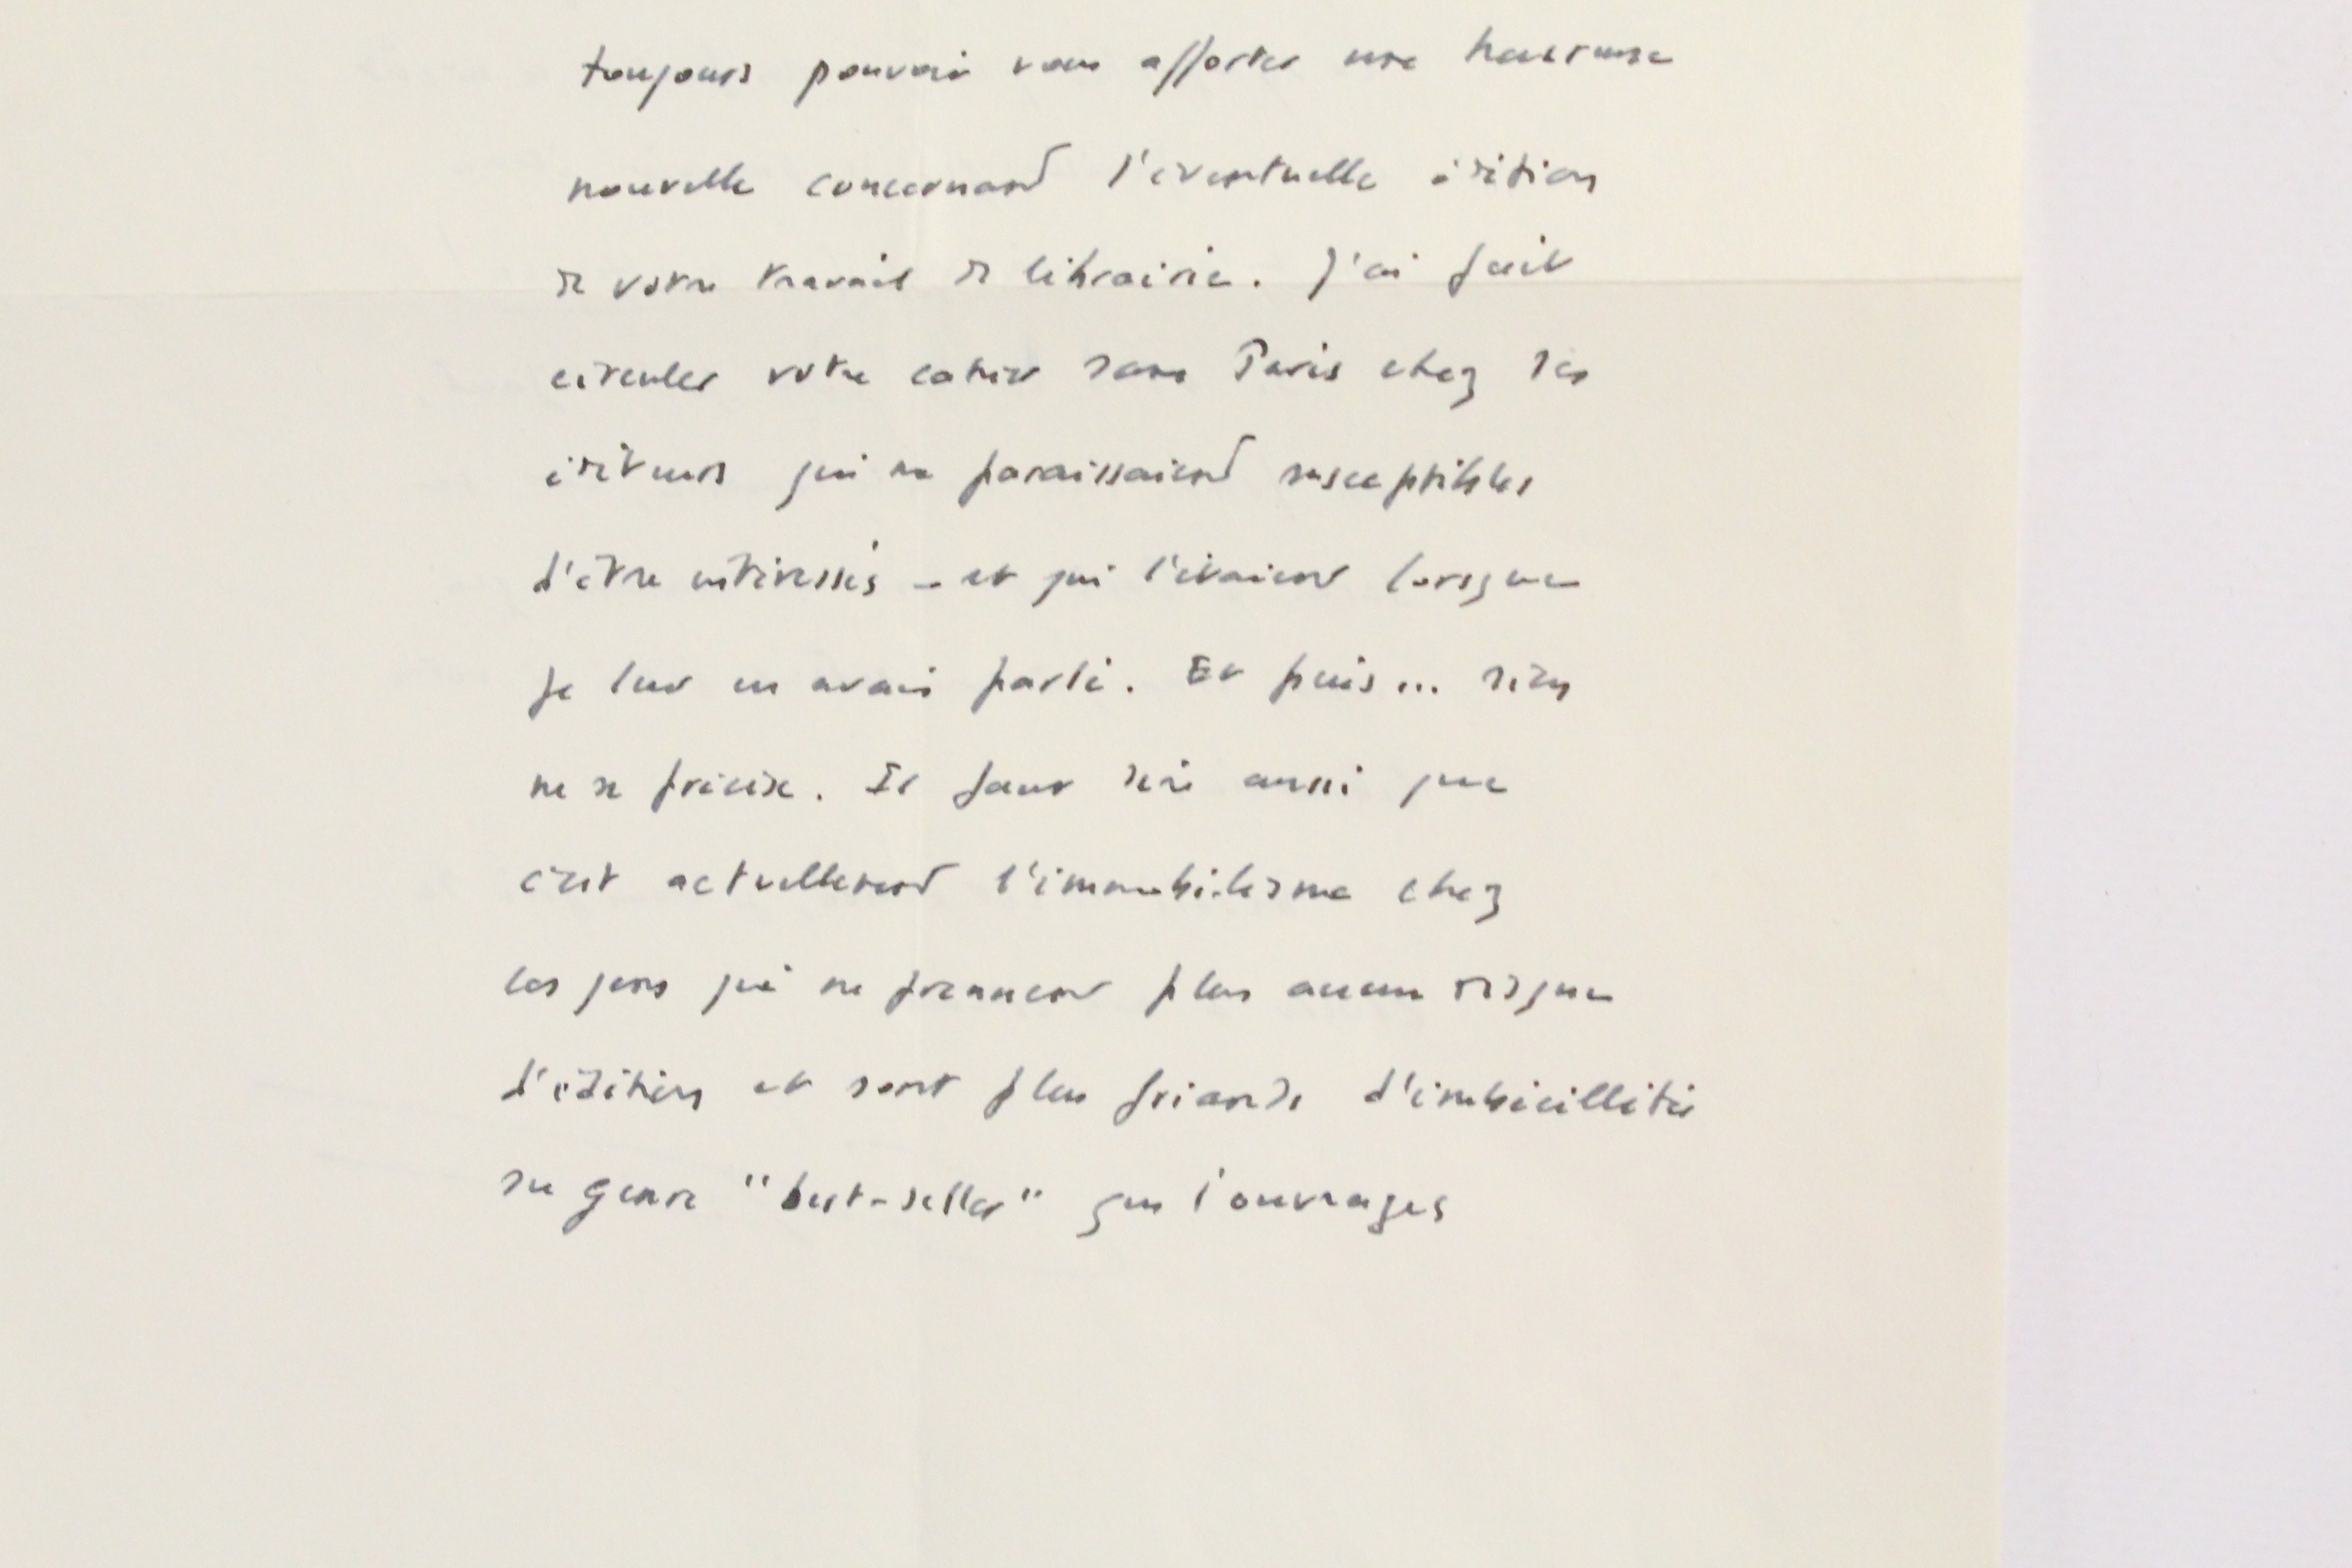 toujours pouvoir vous apporter une heureuse
nouvelle concernant l'éventuelle édition
de votre travail de librairie. J'ai fait
circuler votre cahier dans Paris chez des
éditeurs qui me paraissaient susceptibles
d'être intéressés - et qui l'étaient lorsque
je leur en avais parlé. Et puis... rien
ne se précise. Il faut dire aussi que
c'est actuellement l'immobilisme chez
les gens qui ne prennent plus aucun risque
d'édition et sont plus friands d'imbécillités
du genre "best-seller" que d'ouvrages